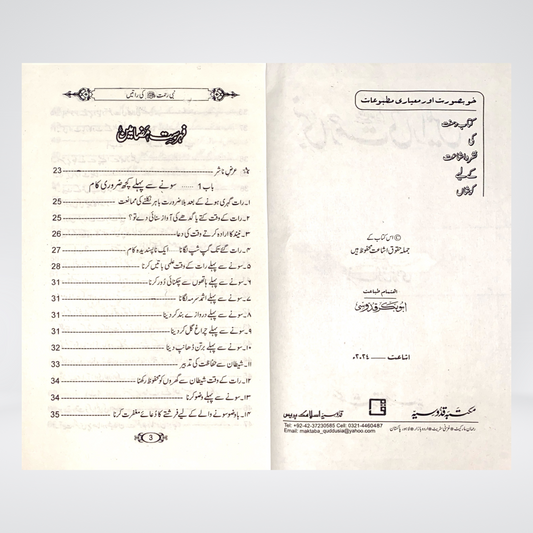 خوبصورت اور معیاری مطبوعات
کتاب و سنت
کی
نشر و اشاعت
کے لیے
کوشاں
© اس کتاب کے
جملہ حقوق اشاعت محفوظ ہیں
اهتمام طباعت
ابوبکر قدوسی
اشاعت ــــــ ۲۰۲۴ء
مکتبہ قدوسیہ
قدوسیہ اسلامک پریس
Tel: +92-42-37230585 Cell: 0321-4460487
Email: maktaba_quddusia@yahoo.com
رحمان مارکیٹ ٭ غزنی سٹریٹ ٭ اردو بازار ٭ لاہور پاکستان
نبی رحمت ﷺ کی راتیں
فہرست مضامین
عرض ناشر 23
باب 1 ...... سونے سے پہلے کچھ ضروری کام
۱۔ رات گہری ہونے کے بعد بلا ضرورت باہر نکلنے کی ممانعت 25
۲۔ رات کے وقت کتے یا گدھے کی آواز سنائی دے تو؟ 25
۳۔ نیند کا ارادہ کرتے وقت کی دعا 26
۴۔ رات گئے تک گپ شپ لگانا ..... ایک ناپسندیدہ کام 27
۵۔ سونے سے پہلے رات کے وقت علمی باتیں کرنا 28
۶۔ سونے سے پہلے ہاتھوں سے چکنائی دور کرنا 31
۷۔ سونے سے پہلے اثمد سرمہ لگانا 31
۸۔ سونے سے پہلے دروازے بند کر دینا 31
۹۔ سونے سے پہلے چراغ گل کر دینا 31
۱۰۔ سونے سے پہلے برتن ڈھانپ دینا 32
۱۱۔ شیطان سے حفاظت کی تدبیر 33
۱۲۔ رات کے وقت شیطان سے گھروں کو محفوظ رکھنا 34
۱۳۔ سونے سے پہلے وضو کرنا 34
۱۴۔ باوضو سونے والے کے لیے فرشتے کا دعائے مغفرت کرنا 35
3